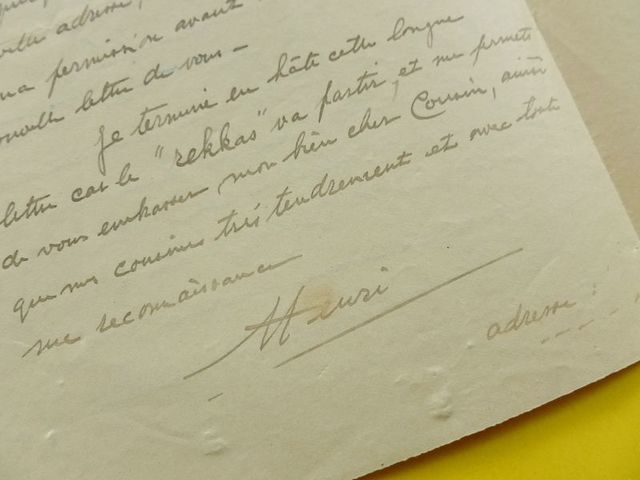 adresse,
ma permission avant
nouvelle lettre de vous -
Je termine en hâte cette longue
lettre car le "rekkas" va partir, et me permets
de vous embrasser mon bien cher Cousin, ainsi
que mes cousines très tendrement et avec toute
ma reconnaissance
Henri
adresse :